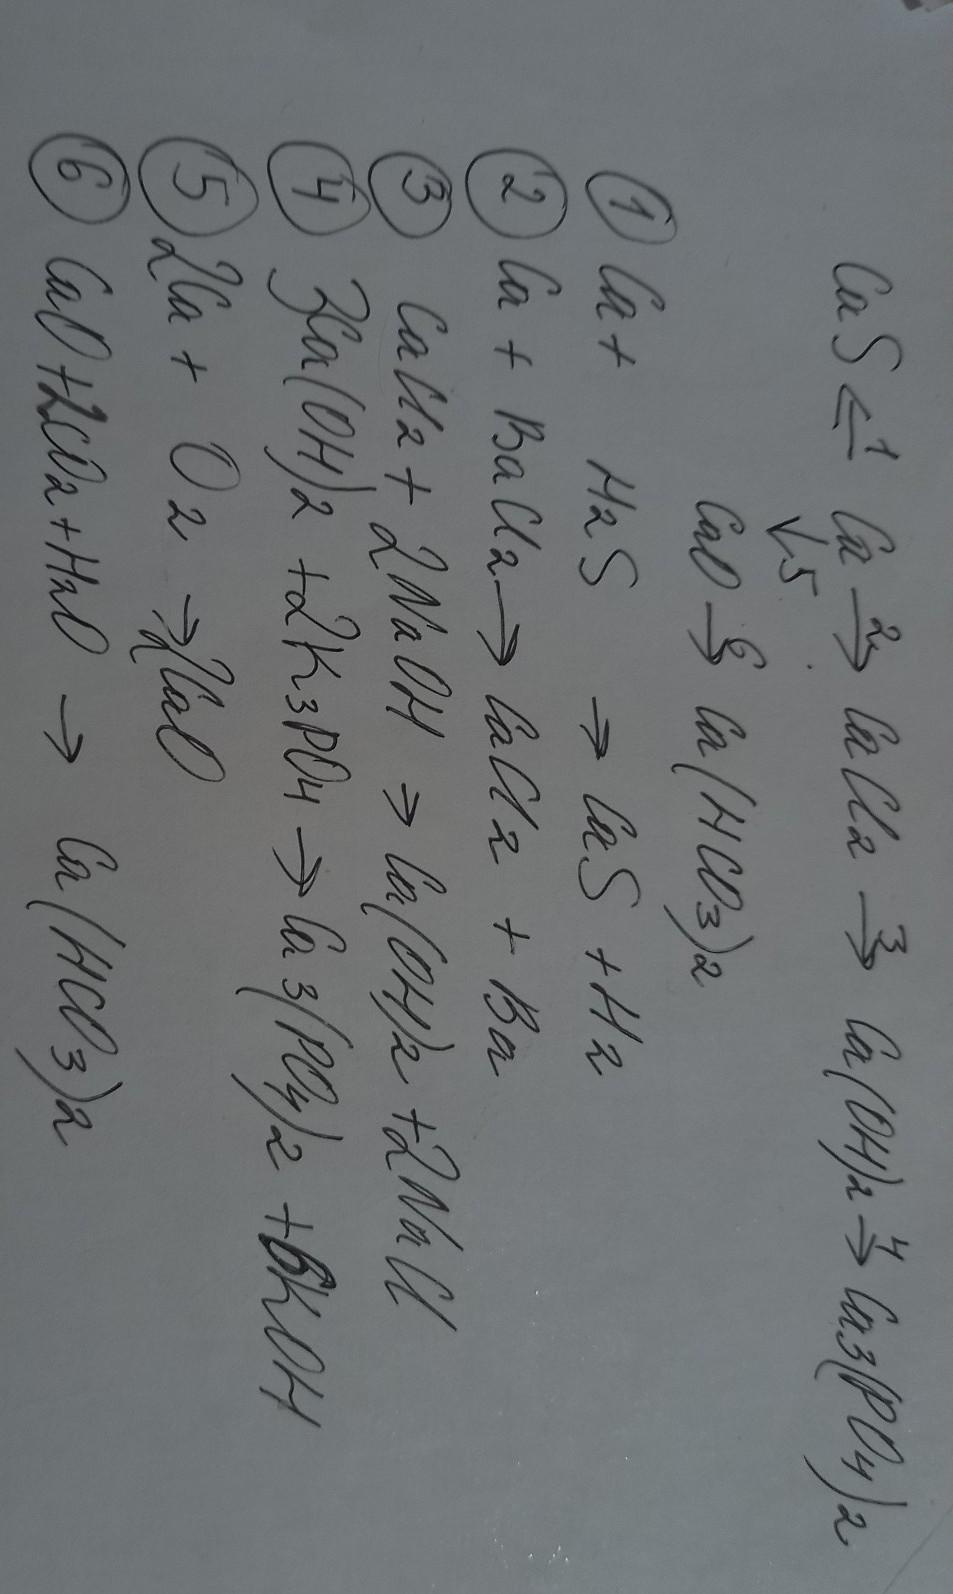 CaS ←1 Ca →2 CaCl2 →3 Ca(OH)2 →4 Ca3(PO4)2
↓5
CaO →6 Ca(HCO3)2
1 Ca + H2S → CaS + H2
2 Ca + BaCl2 → CaCl2 + Ba
3 CaCl2 + 2NaOH → Ca(OH)2 + 2NaCl
4 3Ca(OH)2 + 2K3PO4 → Ca3(PO4)2 + 6KOH
5 2Ca + O2 → 2CaO
6 CaO + 2CO2 + H2O → Ca(HCO3)2